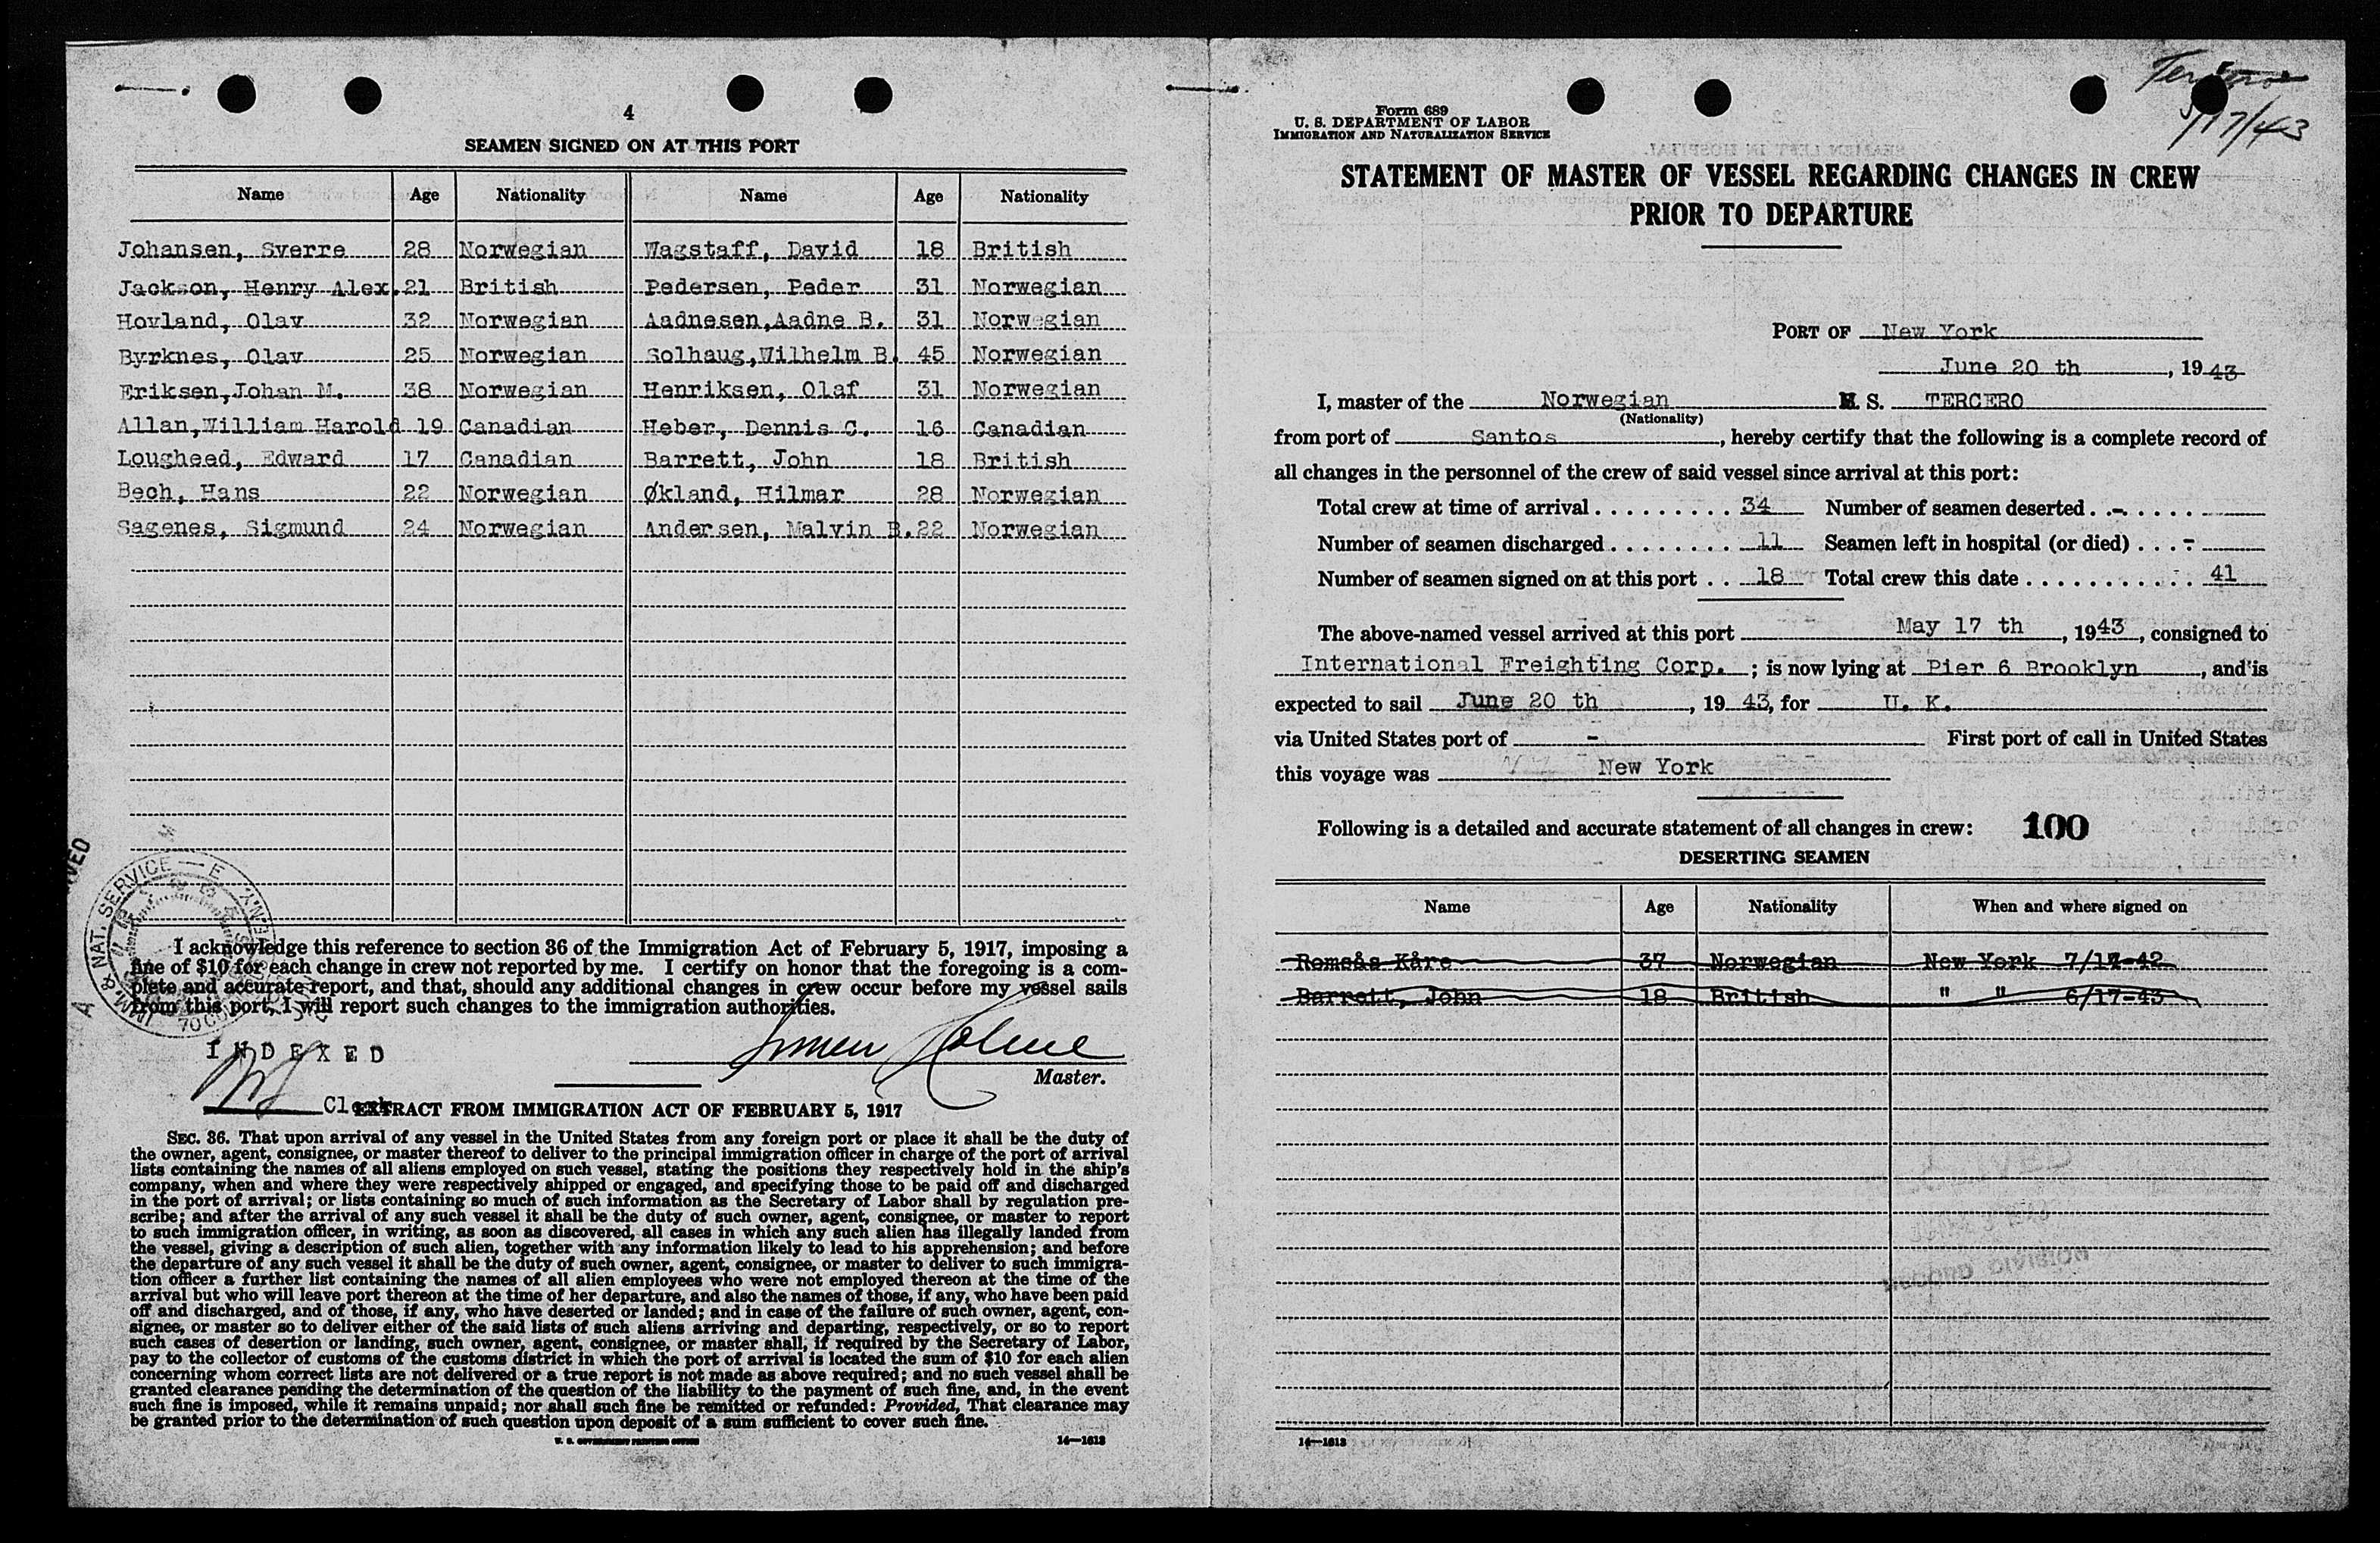 4
SEAMEN SIGNED ON AT THIS PORT
Name Age Nationality Name Age Nationality
Johansen, Sverre 28 Norwegian Wagstaff, David 18 British
Jackson, Henry Alex. 21 British Pedersen, Peder 31 Norwegian
Hovland, Olav 32 Norwegian Aadnesen, Aadne B. 31 Norwegian
Byrknes, Olav 25 Norwegian Solhaug, Wilhelm B. 45 Norwegian
Eriksen, Johan M. 38 Norwegian Henriksen, Olaf 31 Norwegian
Allan, William Harold 19 Canadian Heber, Dennis C. 16 Canadian
Lougheed, Edward 17 Canadian Barrett, John 18 British
Bech, Hans 22 Norwegian Økland, Hilmar 28 Norwegian
Sagenes, Sigmund 24 Norwegian Andersen, Malvin B. 22 Norwegian
IMM. & NAT. SERVICE
I acknowledge this reference to section 36 of the Immigration Act of February 5, 1917, imposing a
fine of $10 for each change in crew not reported by me. I certify on honor that the foregoing is a com-
plete and accurate report, and that, should any additional changes in crew occur before my vessel sails
from this port, I will report such changes to the immigration authorities.
INDEXED
Master.
Clerk
EXTRACT FROM IMMIGRATION ACT OF FEBRUARY 5, 1917
SEC. 36. That upon arrival of any vessel in the United States from any foreign port or place it shall be the duty of
the owner, agent, consignee, or master thereof to deliver to the principal immigration officer in charge of the port of arrival
lists containing the names of all aliens employed on such vessel, stating the positions they respectively hold in the ship's
company, when and where they were respectively shipped or engaged, and specifying those to be paid off and discharged
in the port of arrival; or lists containing so much of such information as the Secretary of Labor shall by regulation pre-
scribe; and after the arrival of any such vessel it shall be the duty of such owner, agent, consignee, or master to report
to such immigration officer, in writing, as soon as discovered, all cases in which any such alien has illegally landed from
the vessel, giving a description of such alien, together with any information likely to lead to his apprehension; and before
the departure of any such vessel it shall be the duty of such owner, agent, consignee, or master to deliver to such immigra-
tion officer a further list containing the names of all alien employees who were not employed thereon at the time of the
arrival but who will leave port thereon at the time of her departure, and also the names of those, if any, who have been paid
off and discharged, and of those, if any, who have deserted or landed; and in case of the failure of such owner, agent, con-
signee, or master so to deliver either of the said lists of such aliens arriving and departing, respectively, or so to report
such cases of desertion or landing, such owner, agent, consignee, or master shall, if required by the Secretary of Labor,
pay to the collector of customs of the customs district in which the port of arrival is located the sum of $10 for each alien
concerning whom correct lists are not delivered or a true report is not made as above required; and no such vessel shall be
granted clearance pending the determination of the question of the liability to the payment of such fine, and, in the event
such fine is imposed, while it remains unpaid; nor shall such fine be remitted or refunded: Provided, That clearance may
be granted prior to the determination of such question upon deposit of a sum sufficient to cover such fine.
U. S. GOVERNMENT PRINTING OFFICE 14—1613
Tercero
5/17/43
Form 689
U. S. DEPARTMENT OF LABOR
IMMIGRATION AND NATURALIZATION SERVICE
STATEMENT OF MASTER OF VESSEL REGARDING CHANGES IN CREW
PRIOR TO DEPARTURE
PORT OF New York
June 20 th, 1943
I, master of the Norwegian M. S. TERCERO
(Nationality)
from port of Santos, hereby certify that the following is a complete record of
all changes in the personnel of the crew of said vessel since arrival at this port:
Total crew at time of arrival . . . . . . . . . 34 Number of seamen deserted . . - . . . . .
Number of seamen discharged . . . . . . . . 11 Seamen left in hospital (or died) . . . -
Number of seamen signed on at this port . . 18 Total crew this date . . . . . . . . . . . 41
The above-named vessel arrived at this port May 17 th, 1943, consigned to
International Freighting Corp.; is now lying at Pier 6 Brooklyn, and is
expected to sail June 20 th, 1943, for U. K.
via United States port of - First port of call in United States
this voyage was New York
Following is a detailed and accurate statement of all changes in crew: 100
DESERTING SEAMEN
Name Age Nationality When and where signed on
Romsås Kåre 37 Norwegian New York 7/17-42
Barrett, John 18 British " " 6/17-43
14—1613